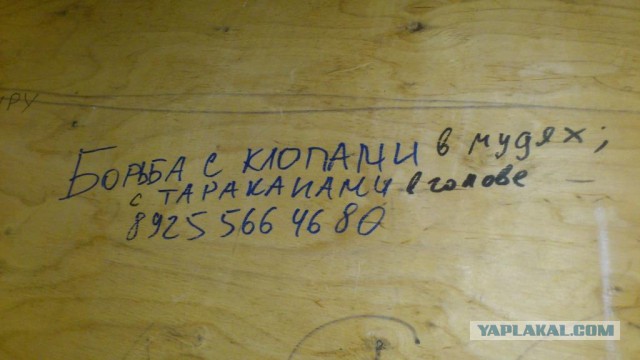 РУ
БОРЬБА С КЛОПАМИ в мудях;
с ТАРАКАНАМИ в голове —
8925 566 46 80
YAPLAKAL.COM